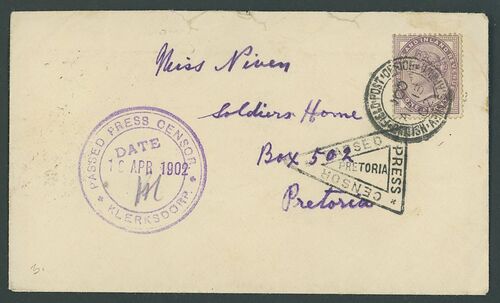 Miss Niven
Soldiers Home
Box 502
Pretoria
PASSED PRESS CENSOR
DATE
APR 1902
KLERKSDORP.
PASSED
PRESS
PRETORIA
CENSOR
FIELD POST OFFICE BRITISH ARMY